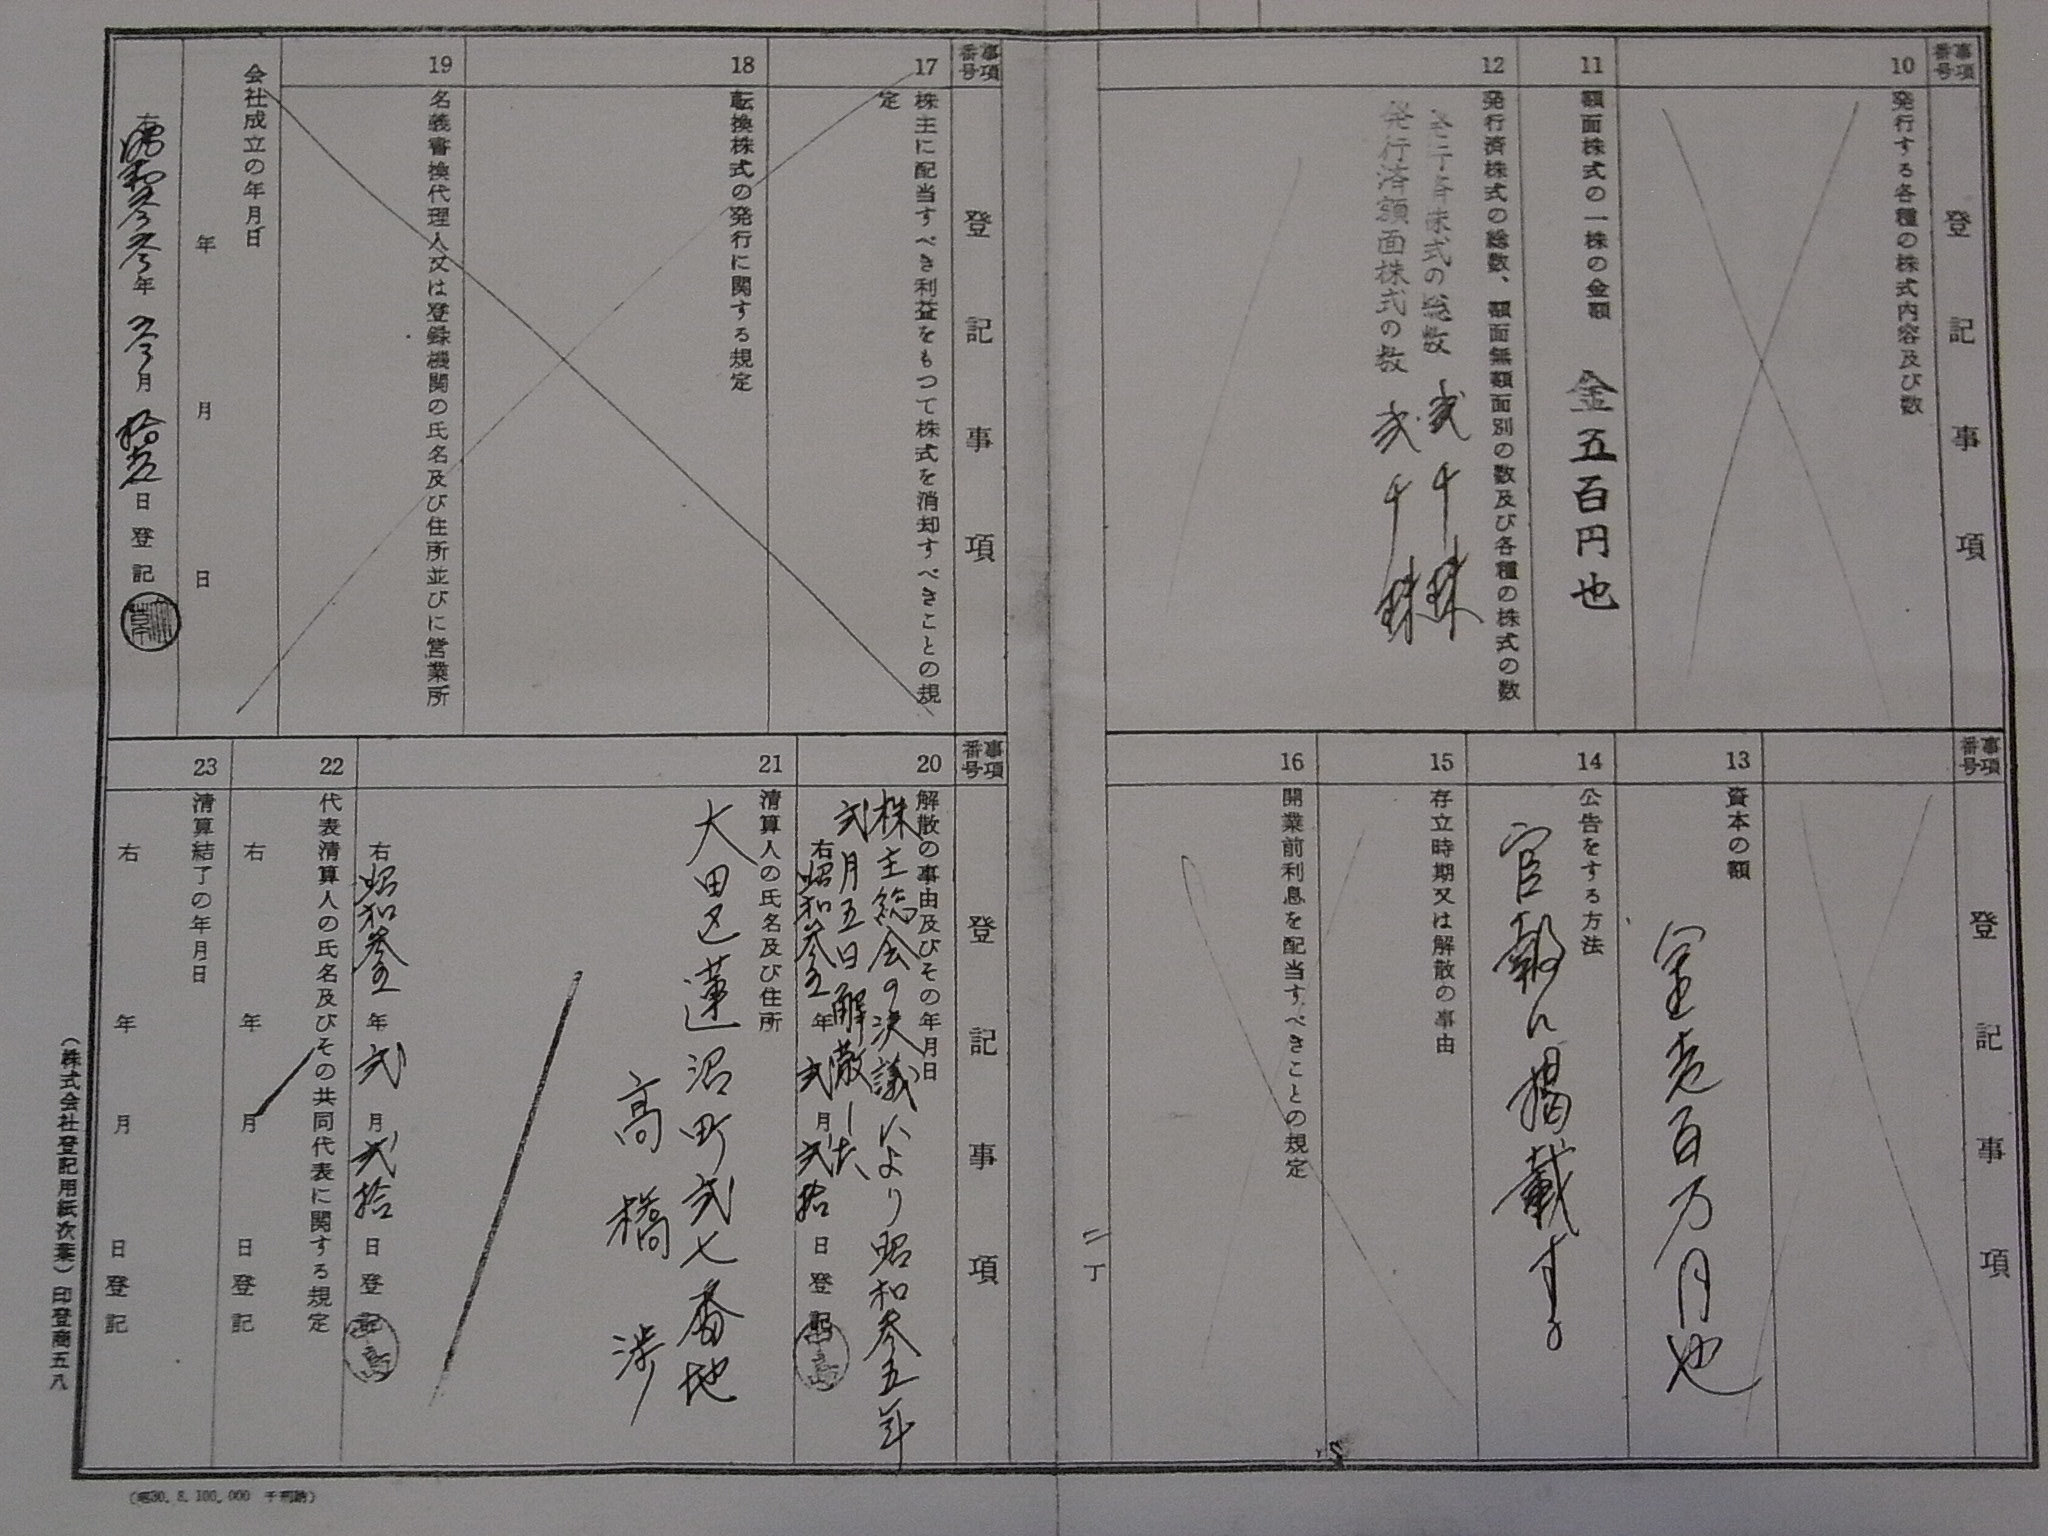 事項番号
登記事項
10
発行する各種の株式内容及び数
11
額面株式の一株の金額
金五百円也
12
発行済株式の総数、額面無額面別の数及び各種の株式の数
発行済株式の総数 弐千株
発行済額面株式の数 弐千株
事項番号
登記事項
13
資本の額
金壱百万円也
14
公告をする方法
官報に掲載する
15
存立時期又は解散の事由
16
開業前利息を配当すべきことの規定
二丁
事項番号
登記事項
17
株主に配当すべき利益をもつて株式を消却すべきことの規
定
18
転換株式の発行に関する規定
19
名義書換代理人又は登録機関の氏名及び住所並びに営業所
会社成立の年月日
年 月 日
右昭和参参年参月拾壱日登記
事項番号
登記事項
20
解散の事由及びその年月日
株主総会の決議により昭和参五年
弐月五日解散した
右昭和参五年弐月弐拾日登記
21
清算人の氏名及び住所
大田区蓮沼町弐七番地
高橋渉
右昭和参五年弐月弐拾日登記
22
代表清算人の氏名及びその共同代表に関する規定
右 年 月 日登記
23
清算結了の年月日
右 年 月 日登記
(株式会社登記用紙次葉)印登商五八
(昭30.8.100,000